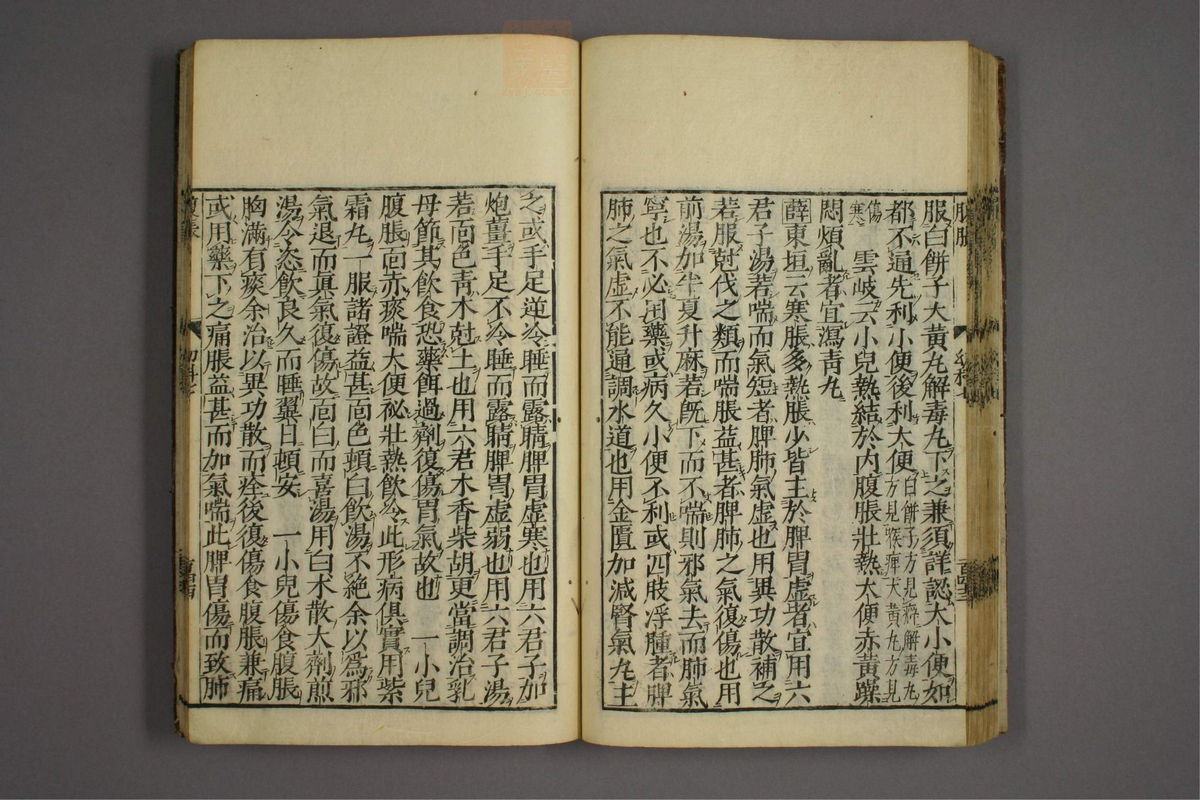 腹脹
服白餅子大黃丸解毒丸下之兼須詳認大小便如
都不通先利小便後利大便白餅子方見癖解毒丸
方見喉痺大黃丸方見
傷寒 雲岐云小兒熱結於內腹脹壯熱大便赤黃躁
悶煩亂者宜瀉靑丸
薛東垣云寒脹多熱脹少皆主於脾胃虛者宜用六
君子湯若喘而氣短者脾肺氣虛也用異功散補之
若服尅伐之類而喘脹益甚者脾肺之氣復傷也用
前湯加半夏升麻若旣下而不喘則邪氣去而肺氣
寧也不必用藥或病久小便不利或四肢浮腫者脾
肺之氣虛不能通調水道也用金匱加減腎氣丸主
之或手足逆冷睡而露睛脾胃虛寒也用六君子加
炮薑手足不冷睡而露睛脾胃虛弱也用六君子湯
若面色靑木尅土也用六君木香柴胡更當調治乳
母節其飮食恐藥餌過劑復傷胃氣故也 一小兒
腹脹面赤痰喘大便祕壯熱飮冷此形病俱實用紫
霜丸一服諸證益甚面色頓白飮湯不絕余以爲邪
氣退而眞氣復傷故面白而喜湯用白朮散大劑煎
湯令恣飮良久而睡翼日頓安 一小兒傷食腹脹
胸滿有痰余治以異功散而痊後復傷食腹脹兼痛
或用藥下之痛脹益甚而加氣喘此脾胃傷而致肺